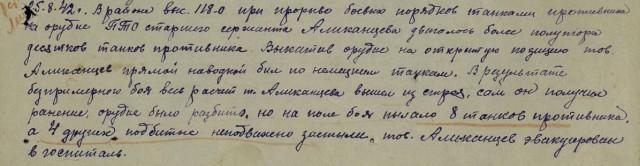 25.8.42г. В районе выс. 118.0 при прорыве боевых порядков танками противника
на орудие ПТО старшего сержанта Алыканцева двигалось более полутора
десятков танков противника. Выкатив орудие на открытую позицию тов.
Алыканцев прямой наводкой бил по немецким танкам. В результате
беспримерного боя весь расчет т. Алыканцева вышел из строя, сам он получил
ранение, орудие было разбито, но на поле боя пылало 8 танков противника,
а 4 других подбитые неподвижно застыли. тов. Алыканцев эвакуирован
в госпиталь.